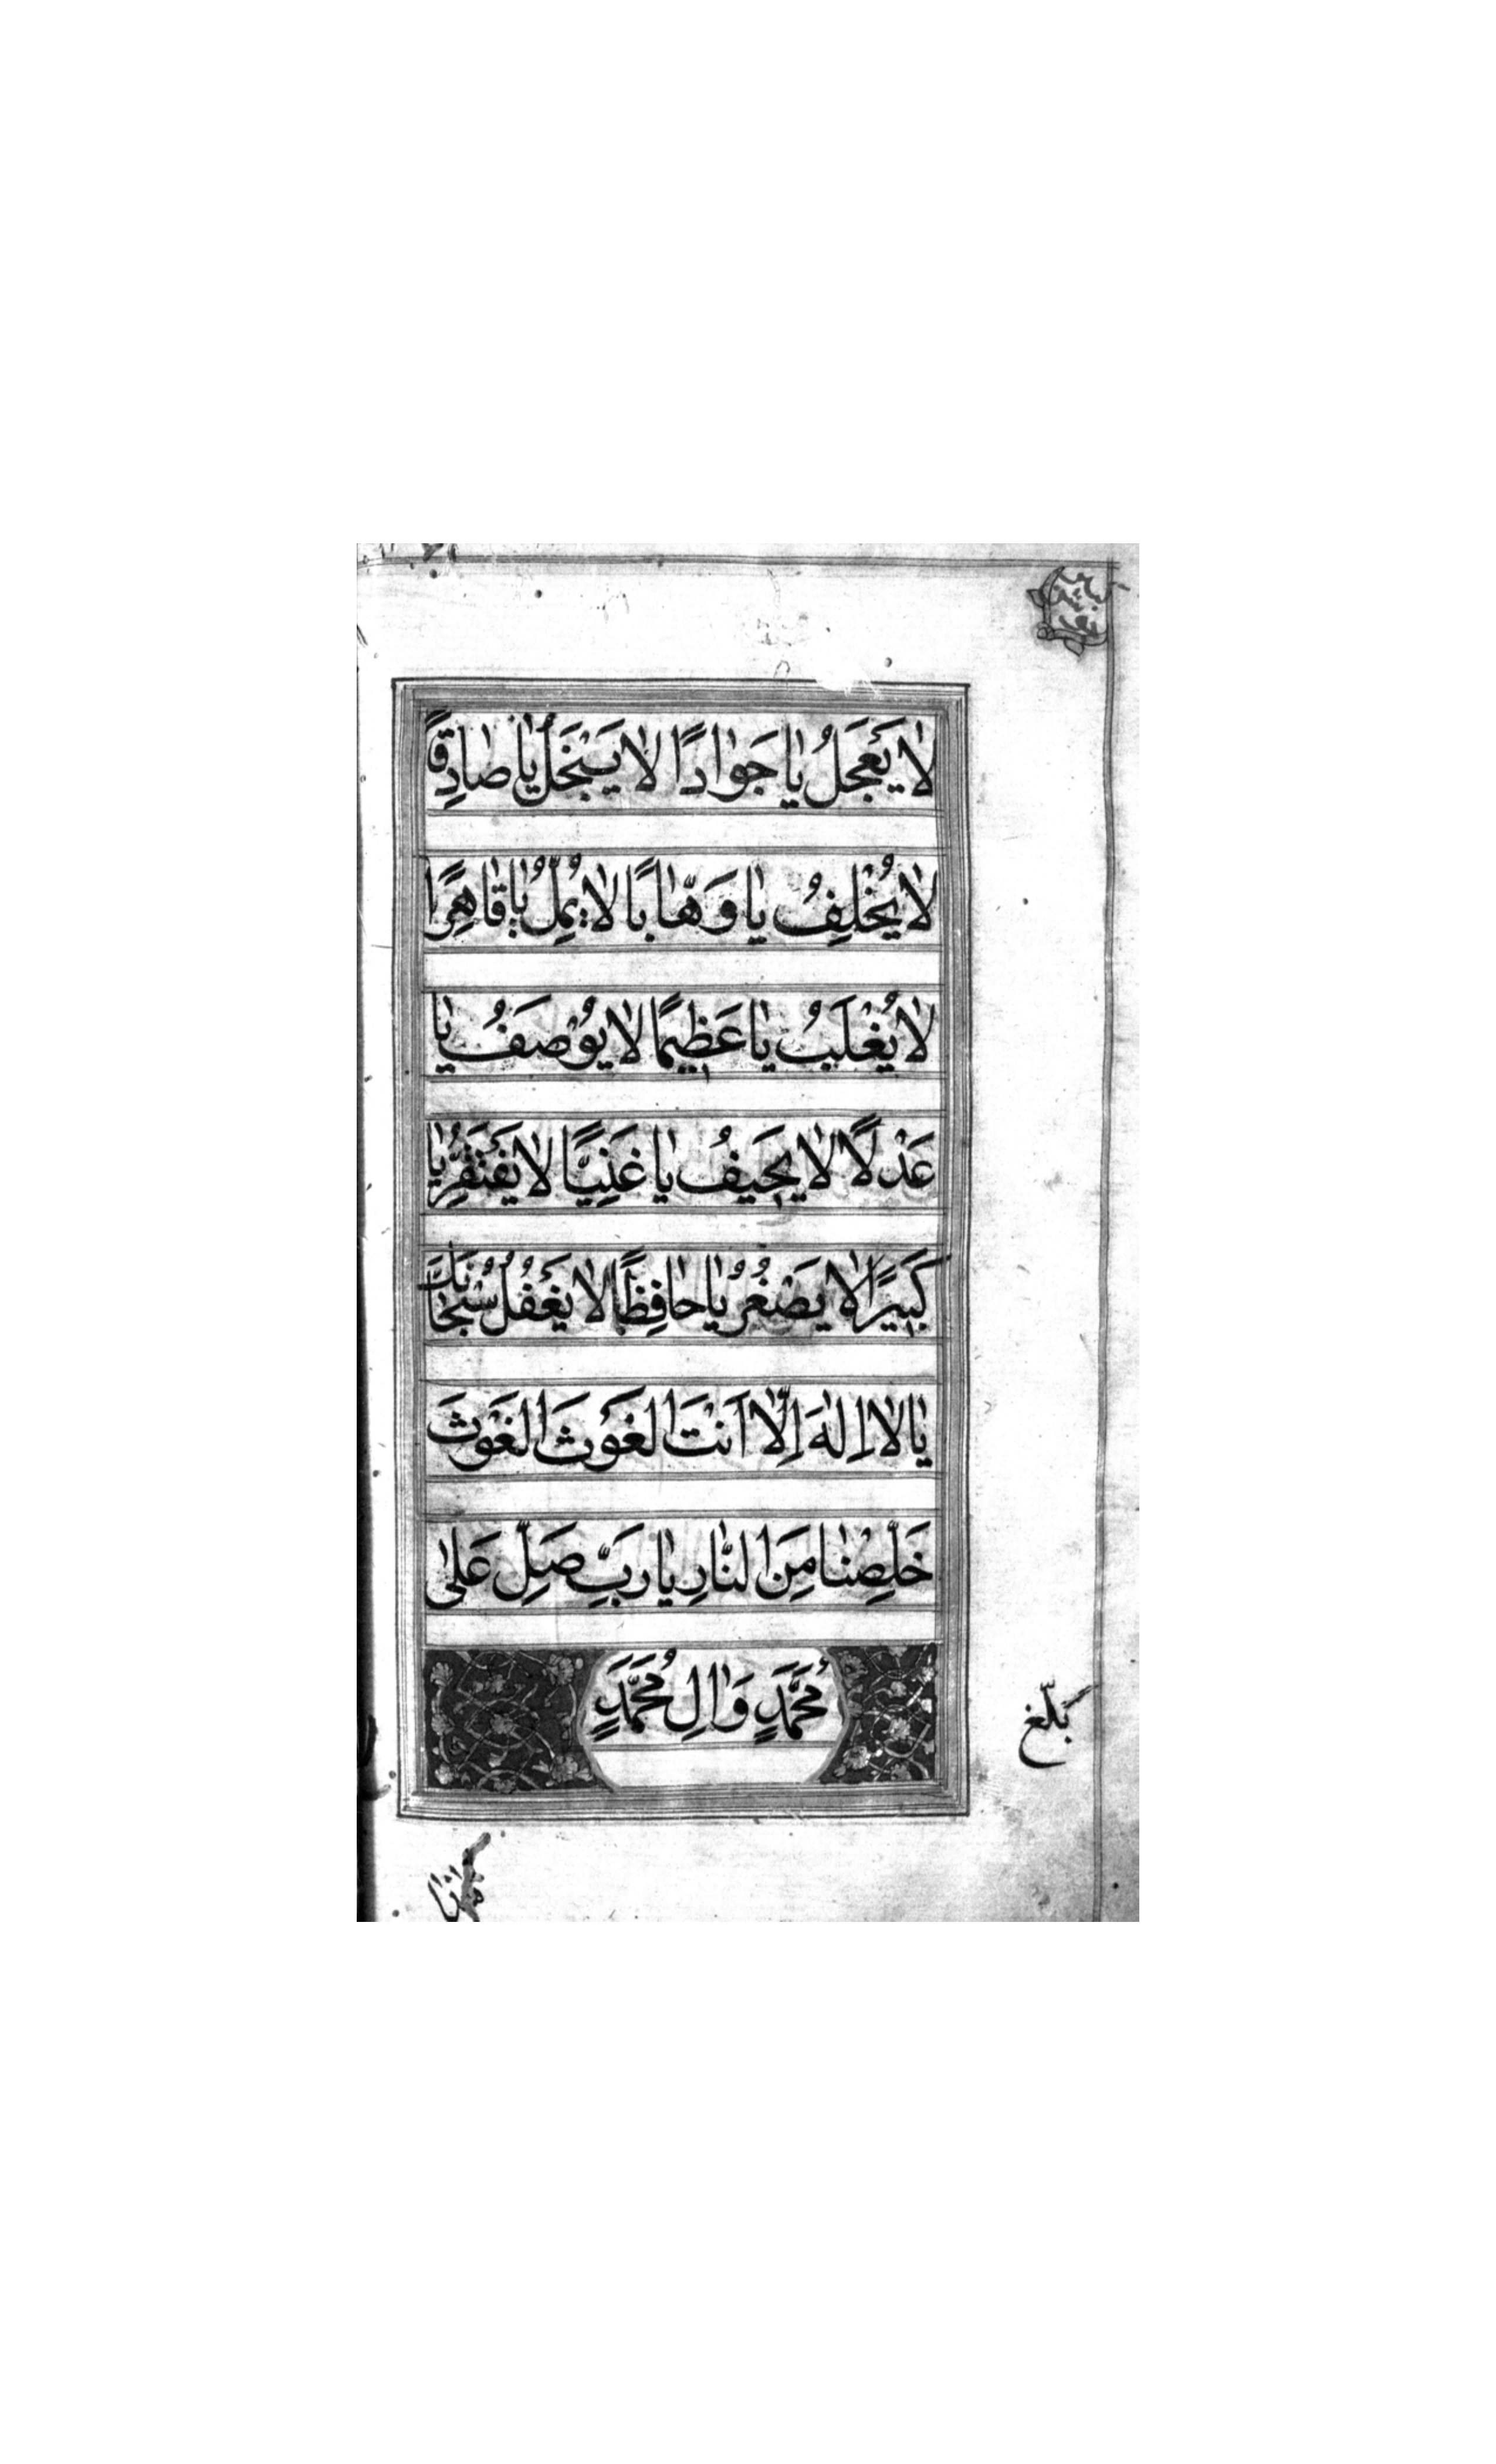 لٰا يَعْجَلُ يٰا جَوٰادًا لٰا يَبْخَلُ يٰا صٰادِقًا
لٰا يُخْلِفُ يٰا وَهّٰابًا لٰا يَمِلُّ يٰا قٰاهِرًا
لٰا يُغْلَبُ يٰا عَظِيمًا لٰا يُوْصَفُ يٰا
عَدْلًا لٰا يَحِيفُ يٰا غَنِيًّا لٰا يَفْتَقِرُ يٰا
كَبِيرًا لٰا يَصْغُرُ يٰا حٰافِظًا لٰا يَغْفُلُ سُبْحٰانَكَ
يٰا لٰا اِلٰهَ اِلّٰا اَنْتَ الْغَوْثَ الْغَوْثَ
خَلِّصْنٰا مِنَ النّٰارِ يٰا رَبِّ صَلِّ عَلىٰ
مُحَمَّدٍ وَاٰلِ مُحَمَّدٍ
بلّغ